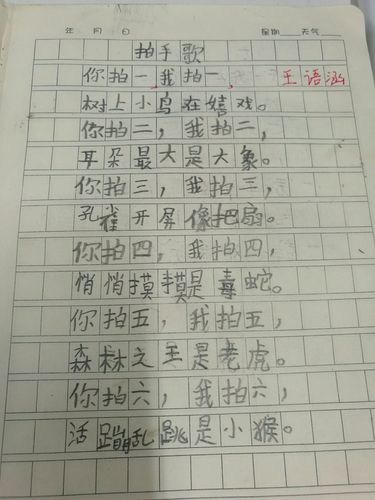 年 月 日 星期 天气
拍手歌
你拍一,我拍一, 王语涵
树上小鸟在嬉戏。
你拍二，我拍二，
耳朵最大是大象。
你拍三，我拍三，
孔雀开屏像把扇。
你拍四，我拍四，
悄悄摸摸是毒蛇。
你拍五，我拍五，
森林之王是老虎。
你拍六，我拍六，
活蹦乱跳是小猴。